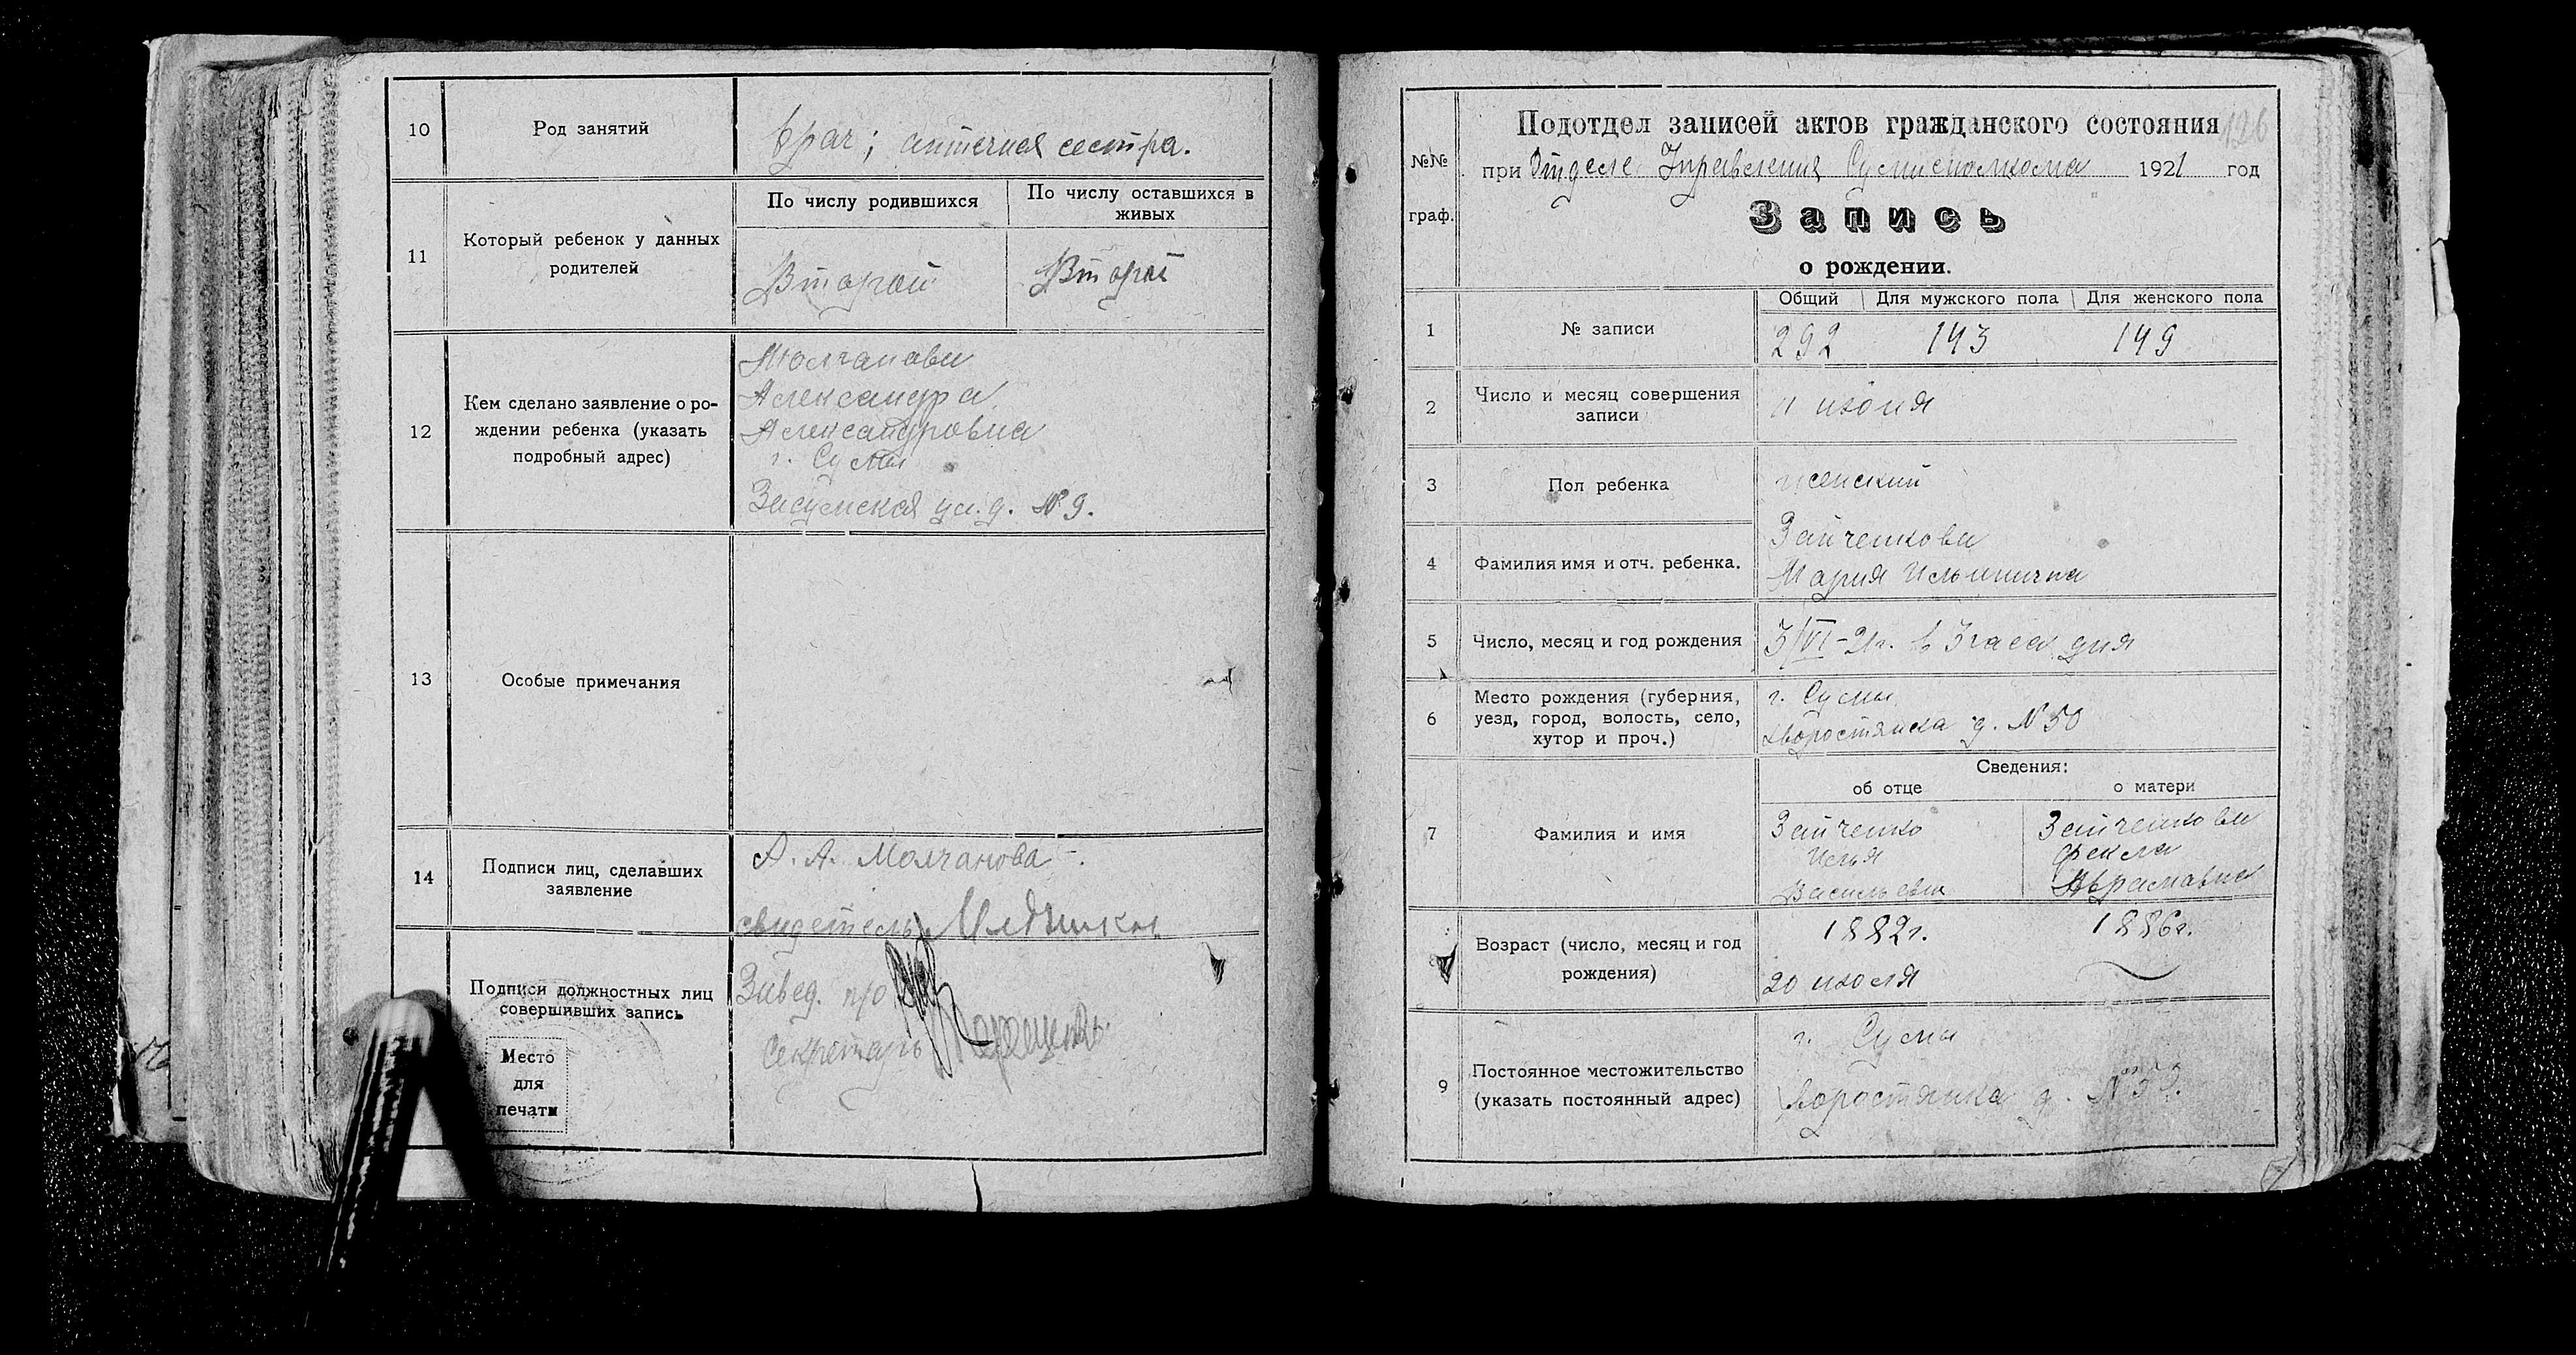 10
Род занятий
врач; аптечная сестра.
11
Который ребенок у данных
родителей
По числу родившихся
По числу оставшихся в
живых
Второй
Второй
12
Кем сделано заявление о ро-
ждении ребенка (указать
подробный адрес)
Молчанова
Александра
Александровна
г. Сумы
Засумская ул. д. № 9.
13
Особые примечания
14
Подписи лиц, сделавших
заявление
А. А. Молчанова
свидетель
Подписи должностных лиц
совершивших запись
Завед. п/о
Секретарь
Место
для
печати
№№
граф.
Подотдел записей актов гражданского состояния
126
при Отделе Управления Сумисполкома 1921 год
Запись
о рождении.
1
№ записи
Общий
Для мужского пола
Для женского пола
292
143
149
2
Число и месяц совершения
записи
11 июня
3
Пол ребенка
женский
4
Фамилия имя и отч. ребенка.
Зайченкова
Мария Ильинична
5
Число, месяц и год рождения
5/VI-21г. в 3 часа дня
6
Место рождения (губерния,
уезд, город, волость, село,
хутор и проч.)
г. Сумы,
Хворостянка д. N 50
7
Фамилия и имя
Сведения:
об отце
о матери
Зайченко
Илья
Васильевич
Зайченкова
Фекла
Авраамовна
8
Возраст (число, месяц и год
рождения)
1882г.
20 июля
1886г.
9
Постоянное местожительство
(указать постоянный адрес)
г. Сумы
Хворостянка д. N 50.